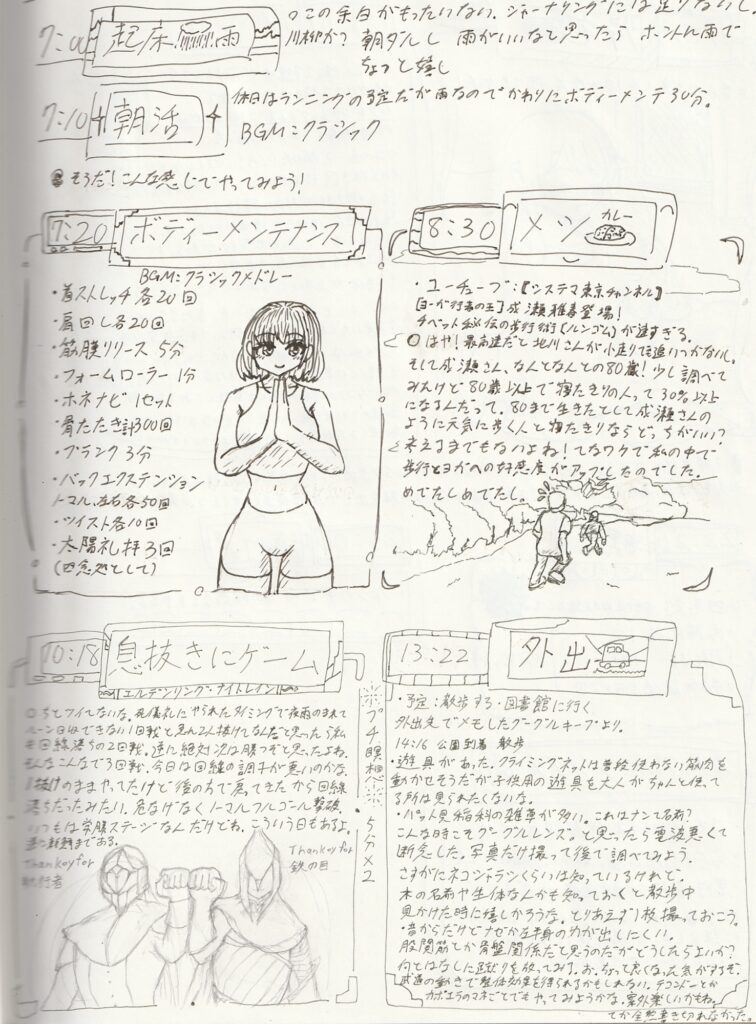 7:00 起床 雨
○この余白がもったいない。ジャーナリングには足りないし
川柳か? 朝ダルし 雨がいいなと思ったら ホントに雨で
ちょっと嬉し
7:10 朝活
休日はランニングの予定だが雨なのでかわりにボディーメンテ30分。
BGM:クラシック
●そうだ!こんな感じでやってみよう!
7:20 ボディーメンテナンス
BGM:クラシックメドレー
・着ストレッチ 各20回
・肩回し各20回
・筋膜リリース 5分
・フォームローラー 1分
・ホネナビ 1セット
・骨たたき計300回
・プランク 3分
・バックエクステンション
ノーマル、左右各50回
・ツイスト各10回
・太陽礼拝3回
(四念処として)
8:30 メシ カレー
・ユーチューブ:【システマ東京チャンネル】
【ヨーガ行者の王】成瀬雅春登場!
チベット秘伝の歩行術【ルンゴム】が速すぎる。
○はや!最高速だと北川さんが小走りでも追いつかないし。
そして成瀬さん、なんとなんとの80歳!少し調べて
みたけど80歳以上で寝たきりの人って30%以上
になるんだって。80まで生きたとして成瀬さんの
ように元気に歩く人と寝たきりならどっちがいい?
考えるまでもないよね!てなワケで私の中で
歩行とヨガへの好感度がアップしたのでした。
めでたしめでたし。
10:18 息抜きにゲーム
エルデンリング・ナイトレイン
○ちとツイてないな。死儀礼にやられたタイミングで夜雨のまれて
ルーン回収できない1回戦と思ったら2人抜けてなんだと思ったら私
も回線落ちの2回戦。逆に絶対次は勝つぞと思ったよね。
そんなこんなで3回戦。今日は回線の調子が悪いのかな。
1抜けのままやってたけど後の方で戻ってきたから回線
落ちだったみたい。危なげなくノーマルフルゴール撃破
いつもは常勝ステージなんだけどね。こういう日もあるよ。
Thankyou for
執行者
Thankyou for
鉄の目
プチ瞑想 5分×2
13:22 外出
・予定:散歩する・図書館に行く
外出先でメモしたグーグルキープより。
14:16 公園到着 散歩
・遊具があった。クライミングネットは普段使わない筋肉を
動かせそうだが子供用の遊具を大人がちゃんと使って
る所は見られたくないな。
・パット見稲科の雑草が多い。これはナンて名前?
こんな時こそグーグルレンズ。と思ったら電波悪くて
断念した。写真だけ撮って後で調べてみよう。
さすがにネコジャラシくらいは知っているけれど。
木の名前や生体なんかも知っておくと散歩中
見かけた時に嬉しかろうな。とりあえず1枚撮っておこう。
・昔からだけどナゼか左半身の力が出しにくい。
股関節とか骨盤関係だと思うのだがどうしたらよいか?
何とはなしに足蹴りを放ってみる。お、ちょっと良くなった気がするぞ。
武道の動きで整体効果を得られるかもしれない。テコンドーとか
カポエラのマネごとでもやってみようかな。案外楽しいかもね。
てか全然書き切れなかった。